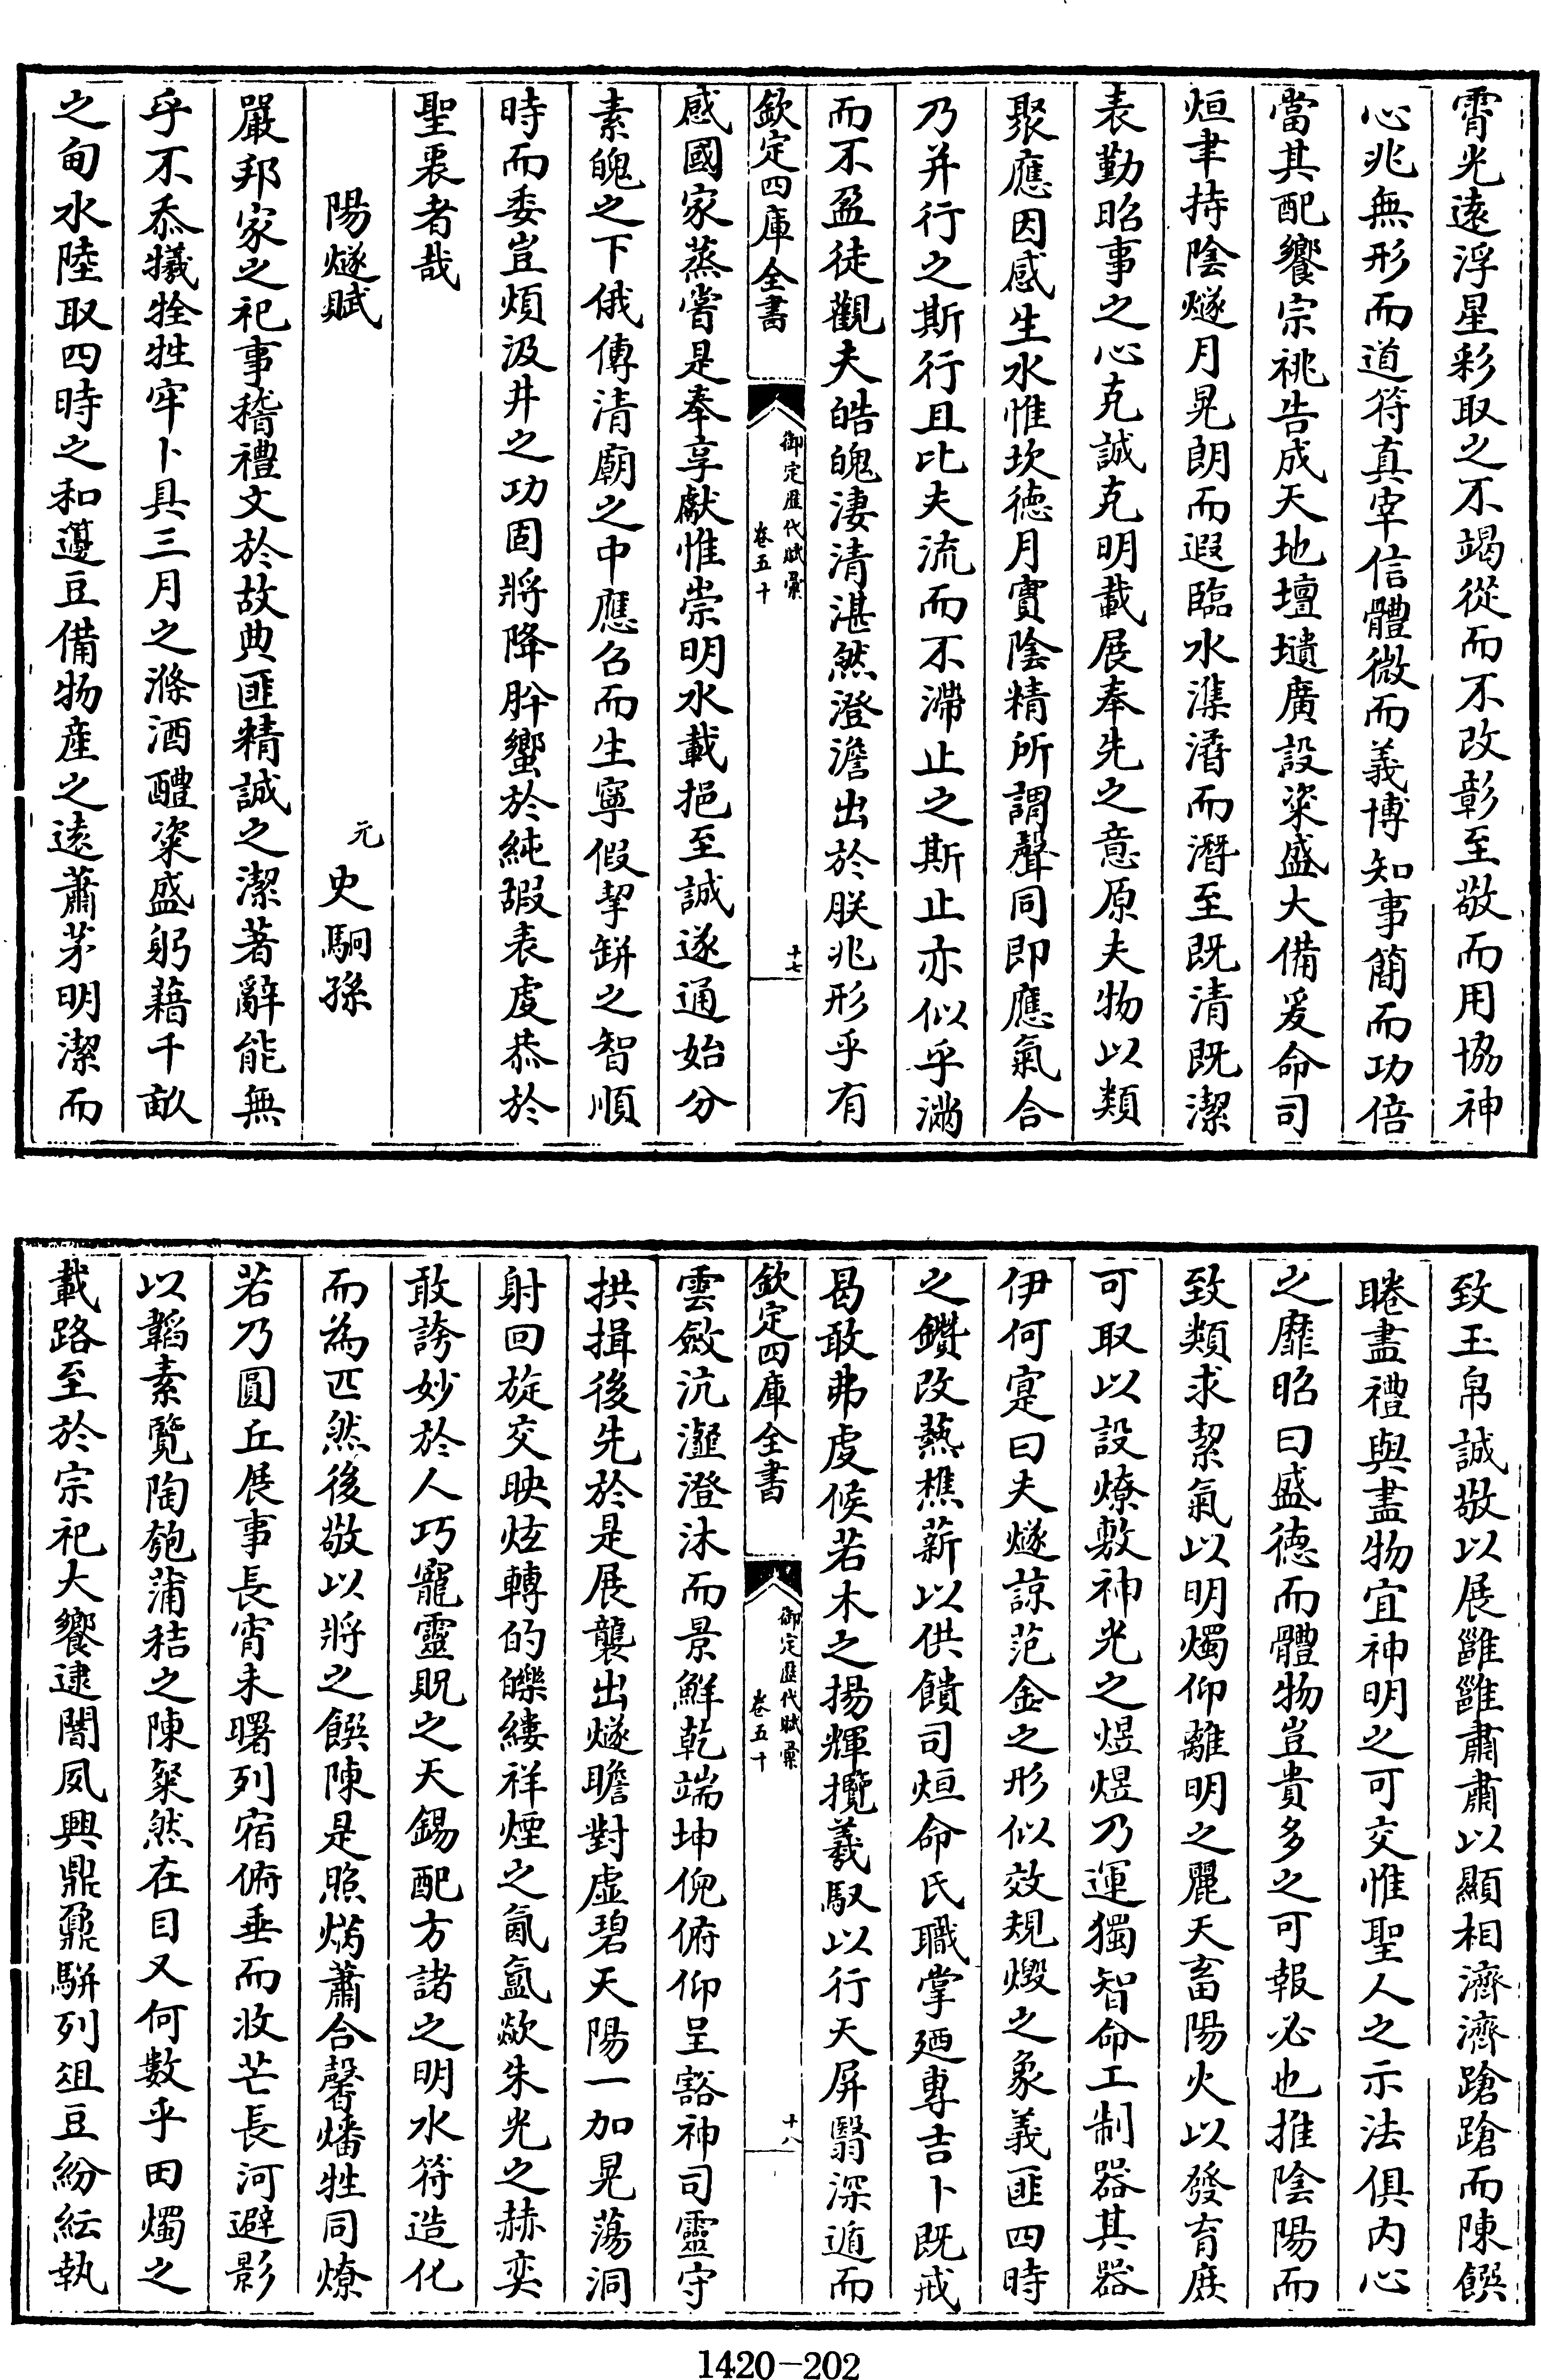 霄光遠浮星彩取之不竭從而不改彰至敬而用恊神
心兆無形而道符真宰信體微而義博知事簡而功倍
當其配饗宗祧告成天地壇壝廣設粢盛大備爰命司
烜聿持陰燧月晃朗而遐臨水漼漼而潛至既清既潔
表勤昭事之心克誠克明載展奉先之意原夫物以類
聚應因感生水惟坎德月實陰精所謂聲同即應氣合
乃并行之斯行且比夫流而不滯止之斯止亦似乎滿
而不盈徒觀夫皓魄淒清湛然澄澹出於朕兆形乎有
欽定四庫全書
御定歷代賦彙
卷五十
十七
感國家蒸嘗是奉享獻惟崇明水載挹至誠遂通始分
素魄之下俄傳清廟之中應召而生寧假挈缾之智順
時而委豈煩汲井之功固將降肸蠁於純嘏表虔恭於
聖衷者哉
陽燧賦
元
史駧孫
嚴邦家之祀事稽禮文於故典匪精誠之潔著辭能無
乎不忝犧牷牲牢卜具三月之滌酒醴粢盛躬藉千畝
之甸水陸取四時之和籩豆備物產之遠蕭茅明潔而
致玉帛誠敬以展雝雝肅肅以顯相濟濟蹌蹌而陳饌
睠盡禮與盡物宜神明之可交惟聖人之示法俱内心
之靡昭曰盛德而體物豈貴多之可報必也推陰陽而
致類求絜氣以明燭仰離明之麗天畜陽火以發育庶
可取以設燎敷神光之煜煜乃運獨智命工制器其器
伊何寔曰夫燧諒范金之形似效規燬之象義匪四時
之鑽改爇樵薪以供饋司烜命氏職掌廼專吉卜既戒
曷敢弗虔候若木之揚輝攬羲馭以行天屏翳深遁而
欽定四庫全書
御定歷代賦彙
卷五十
十八
雲斂沆瀣澄沐而景鮮乾端坤倪俯仰呈豁神司靈守
拱揖後先於是展襲出燧瞻對虛碧天陽一加晃蕩洞
射回旋交映炫轉的皪縷祥煙之氤氳歘朱光之赫奕
敢誇妙於人巧寵靈貺之天錫配方諸之明水符造化
而為匹然後敬以將之饌陳是照焫蕭合馨燔牲同燎
若乃圓丘展事長宵未曙列宿俯垂而收芒長河避影
以韜素覽陶匏蒲秸之陳粲然在目又何數乎田燭之
載路至於宗祀大饗逮闇夙興鼎鼐駢列俎豆紛紜執
1420-202